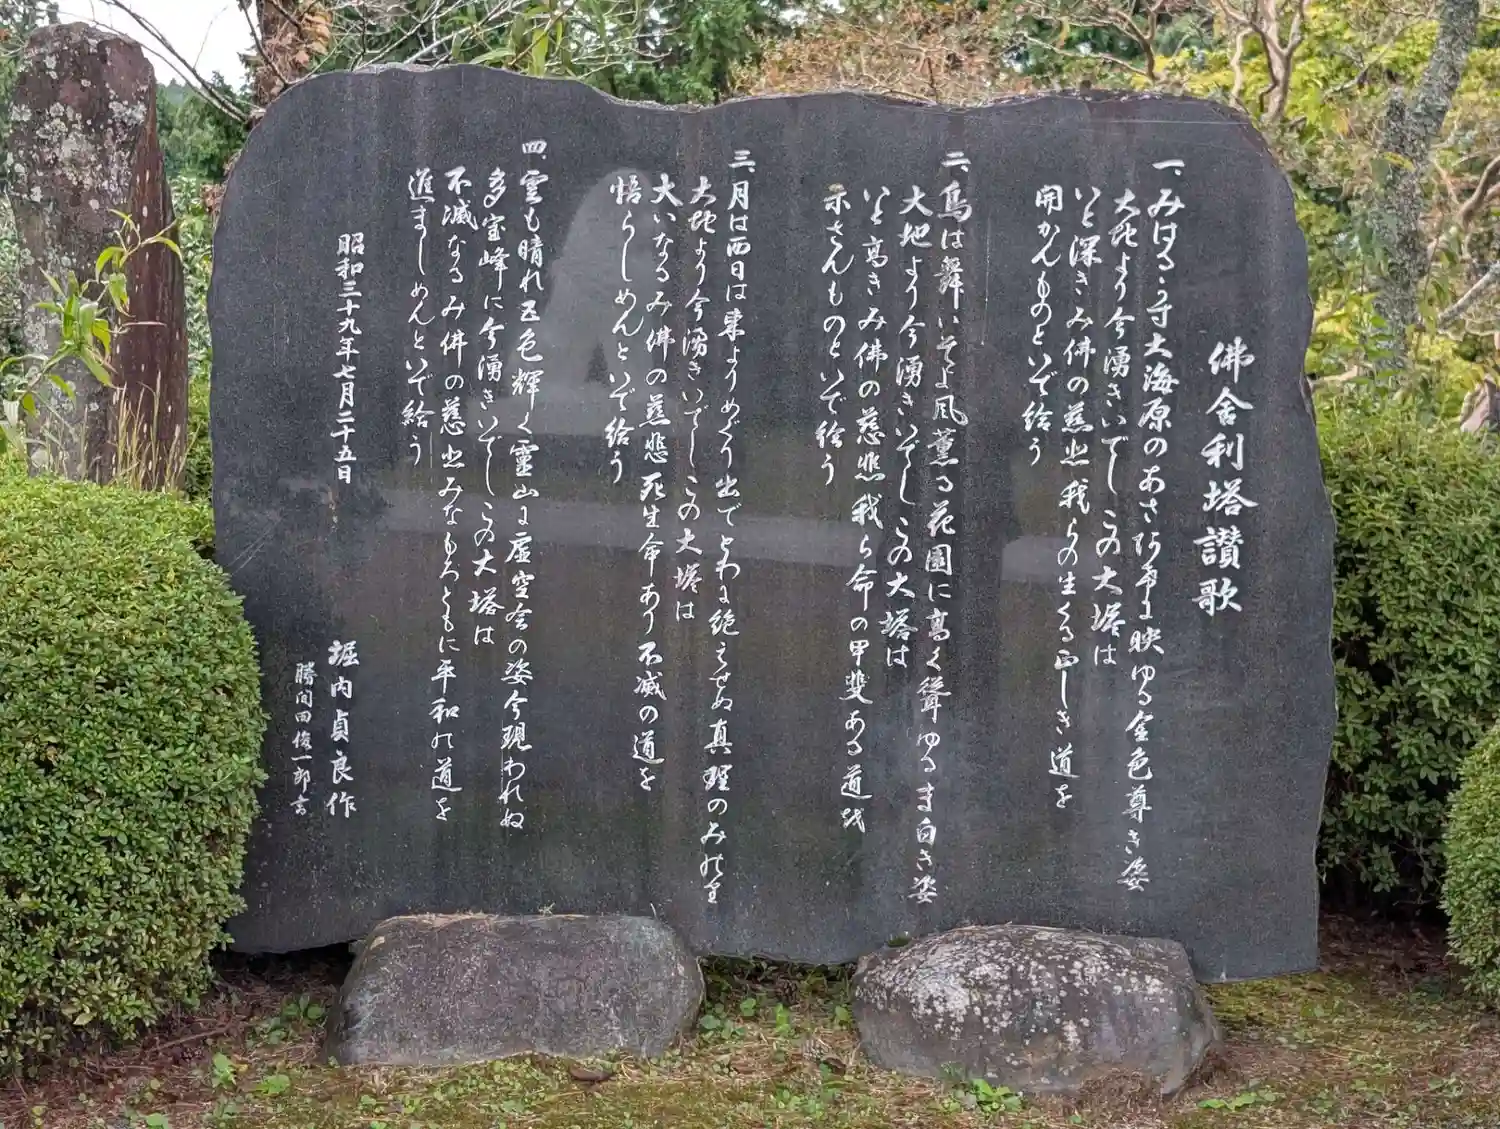 佛舎利塔讃歌
一、みはるかす大海原のあさあけに映ゆる金色尊き姿
大地より今湧きいでしこの大塔は
いと深きみ佛の慈悲我らの生くる正しき道を
開かんものといで給う
二、鳥は舞いそよ風薫る花園に高く聳ゆるま白き姿
大地より今湧きいでしこの大塔は
いと高きみ佛の慈悲我ら命の甲斐ある道を
示さんものといで給う
三、月は西日は東よりめぐり出でとわに絶えせぬ真理のみ
大地より今湧きいでしこの大塔は
大いなるみ佛の慈悲死生命あり不滅の道を
悟らしめんといで給う
四、雲も晴れ五色輝く靈山に虚空会の姿今現われぬ
多宝峰に今湧きいでしこの大塔は
不滅なるみ佛の慈悲みなもろともに平和の道を
進ましめんといで給う
昭和三十九年七月二十五日
堀内貞良作
勝間田俊一郎書